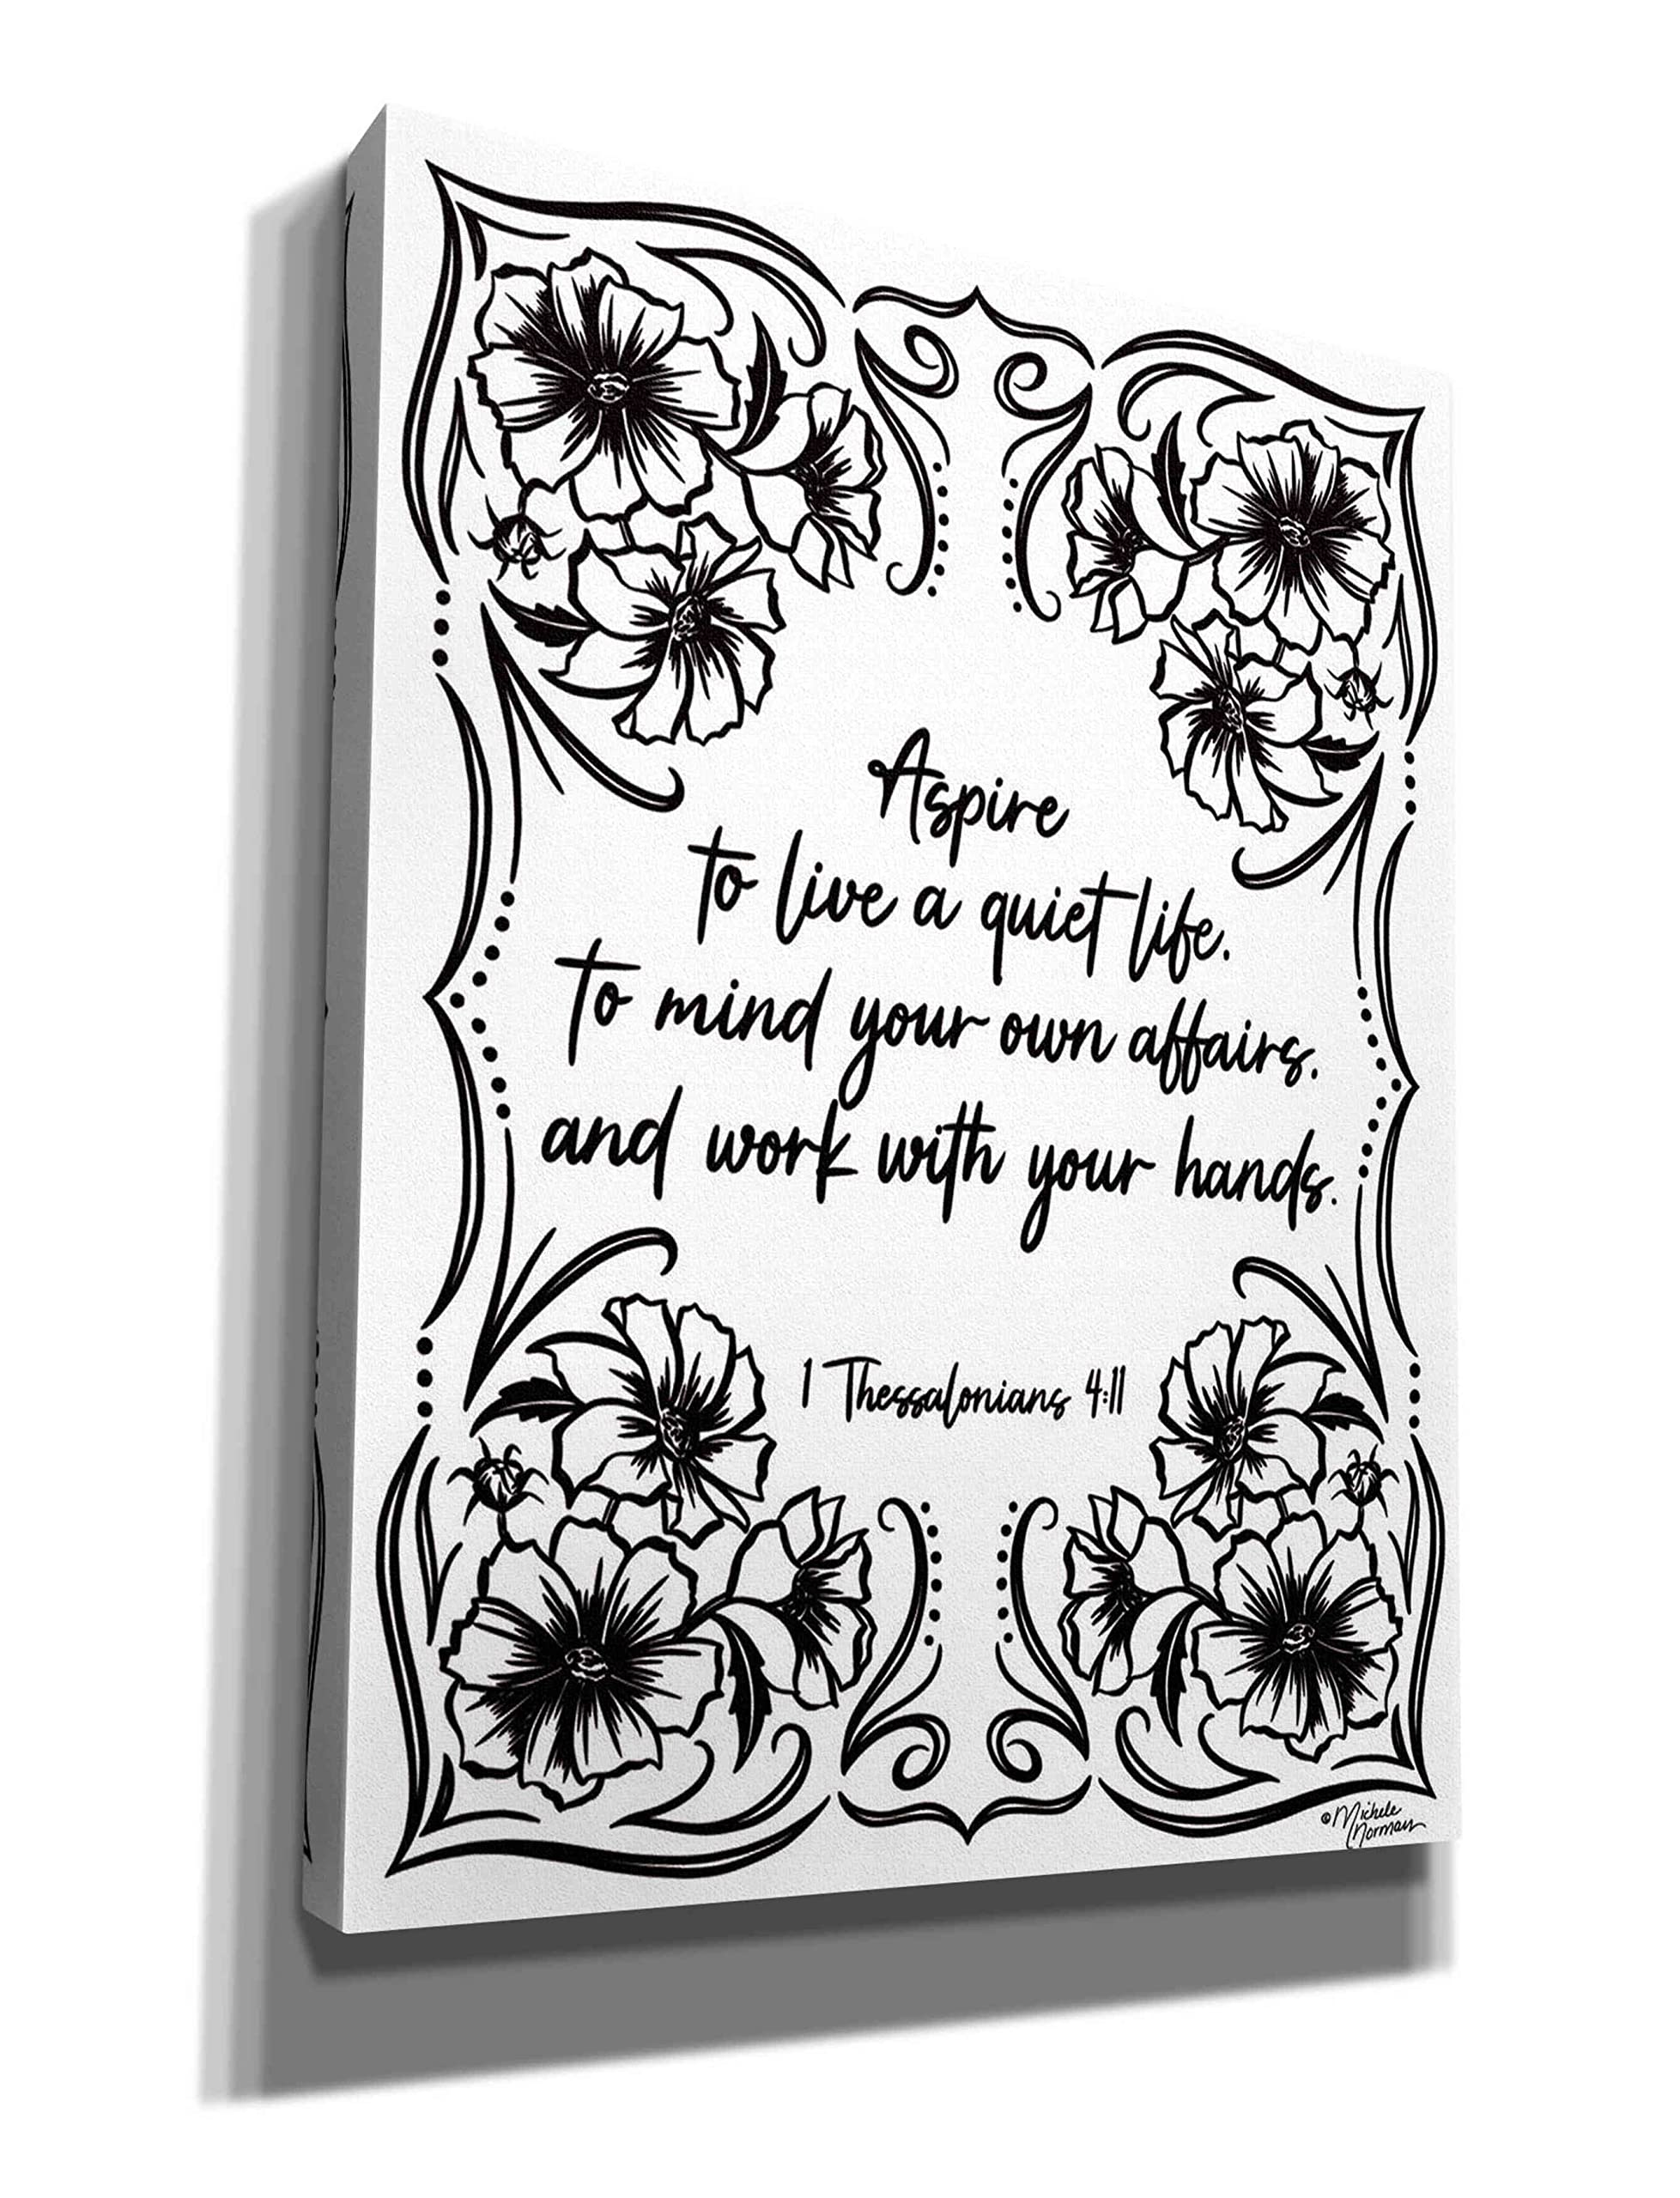 Aspire
to live a quiet life.
To mind your own affairs.
and work with your hands.
1 Thessalonians 4:11
© Michele
Norman